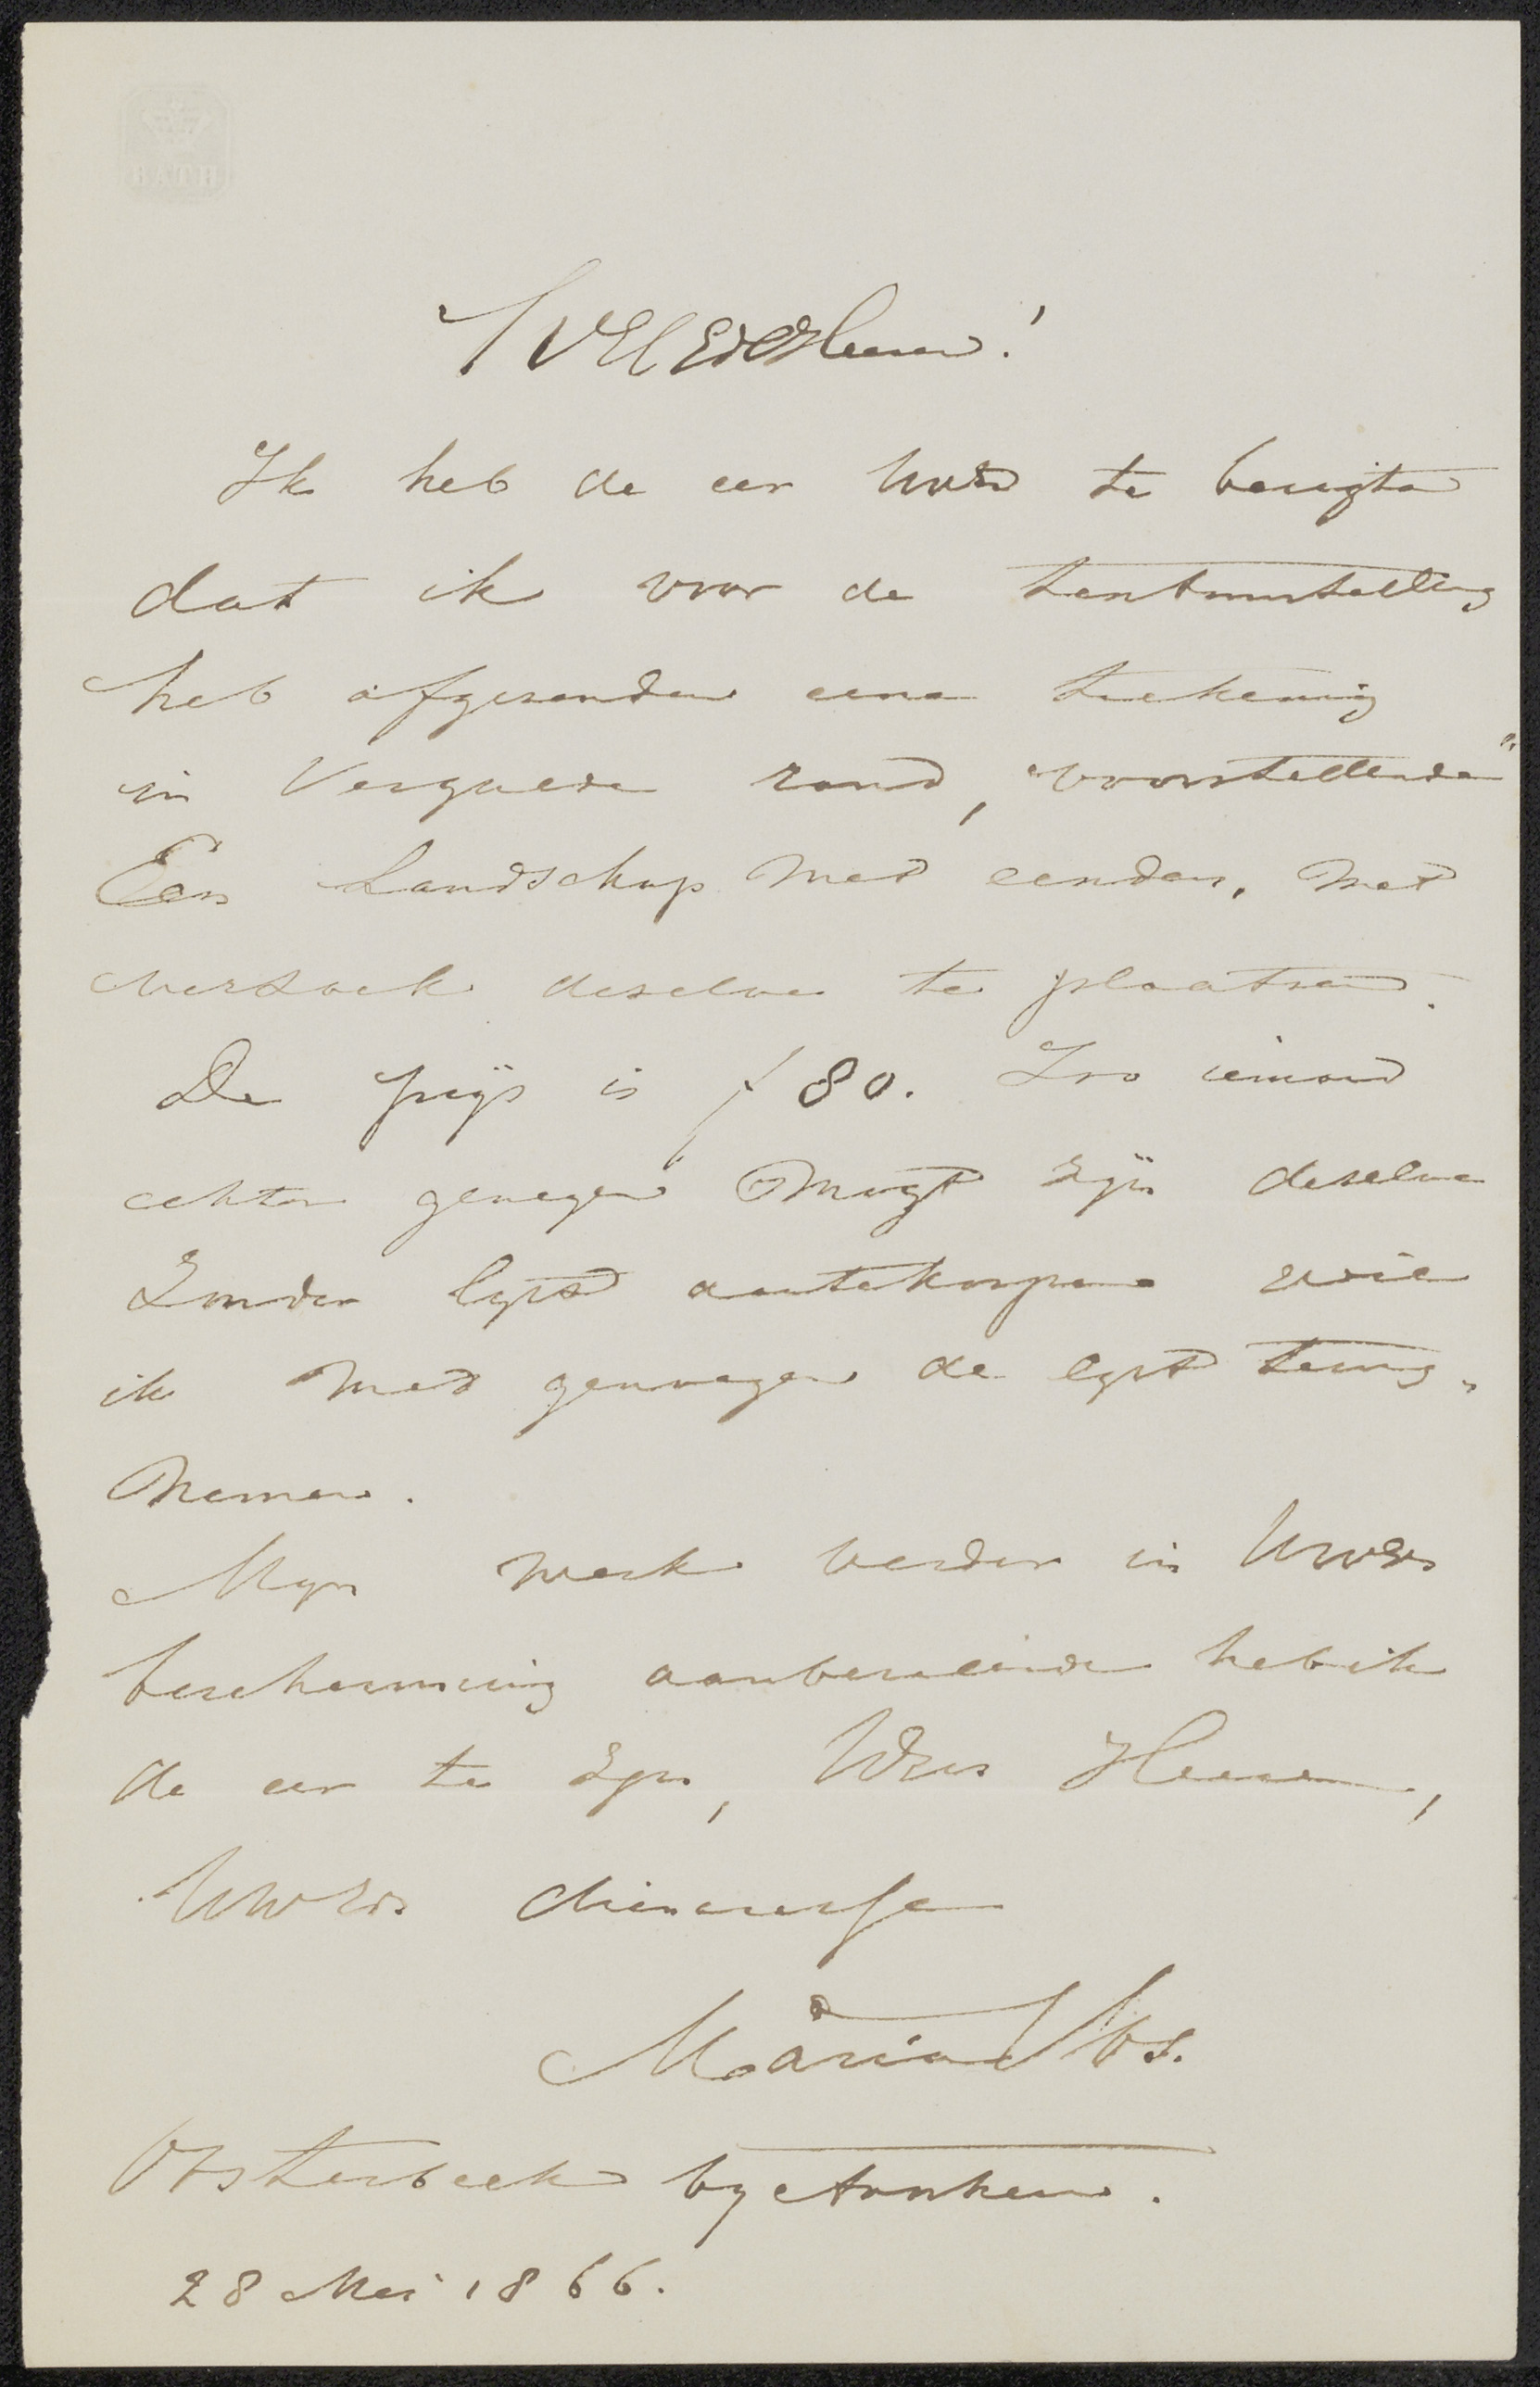 BATH
WelEdele Heeren!
Ik heb de eer UwEd te berigten
dat ik voor de tentoonstelling
heb afgezonden eene teekening
in Vergulde rand, "voorstellende"
Een Landschap met eenden, met
verzoek dezelve te plaatsen.
De prijs is f 80. Zoo iemand
echter genegen mogt zijn dezelve
Zonder lyst aantekoopen zoie
ik met genoegen de lyst terug„
nemen.
Myn werk verder in UwEds
bescherming aanbevelende heb ik
de eer te zyn, WEd Heeren,
UwEds dienaresse
Maria Vos.
Oosterbeek by Arnhem.
28 Mei 1866.